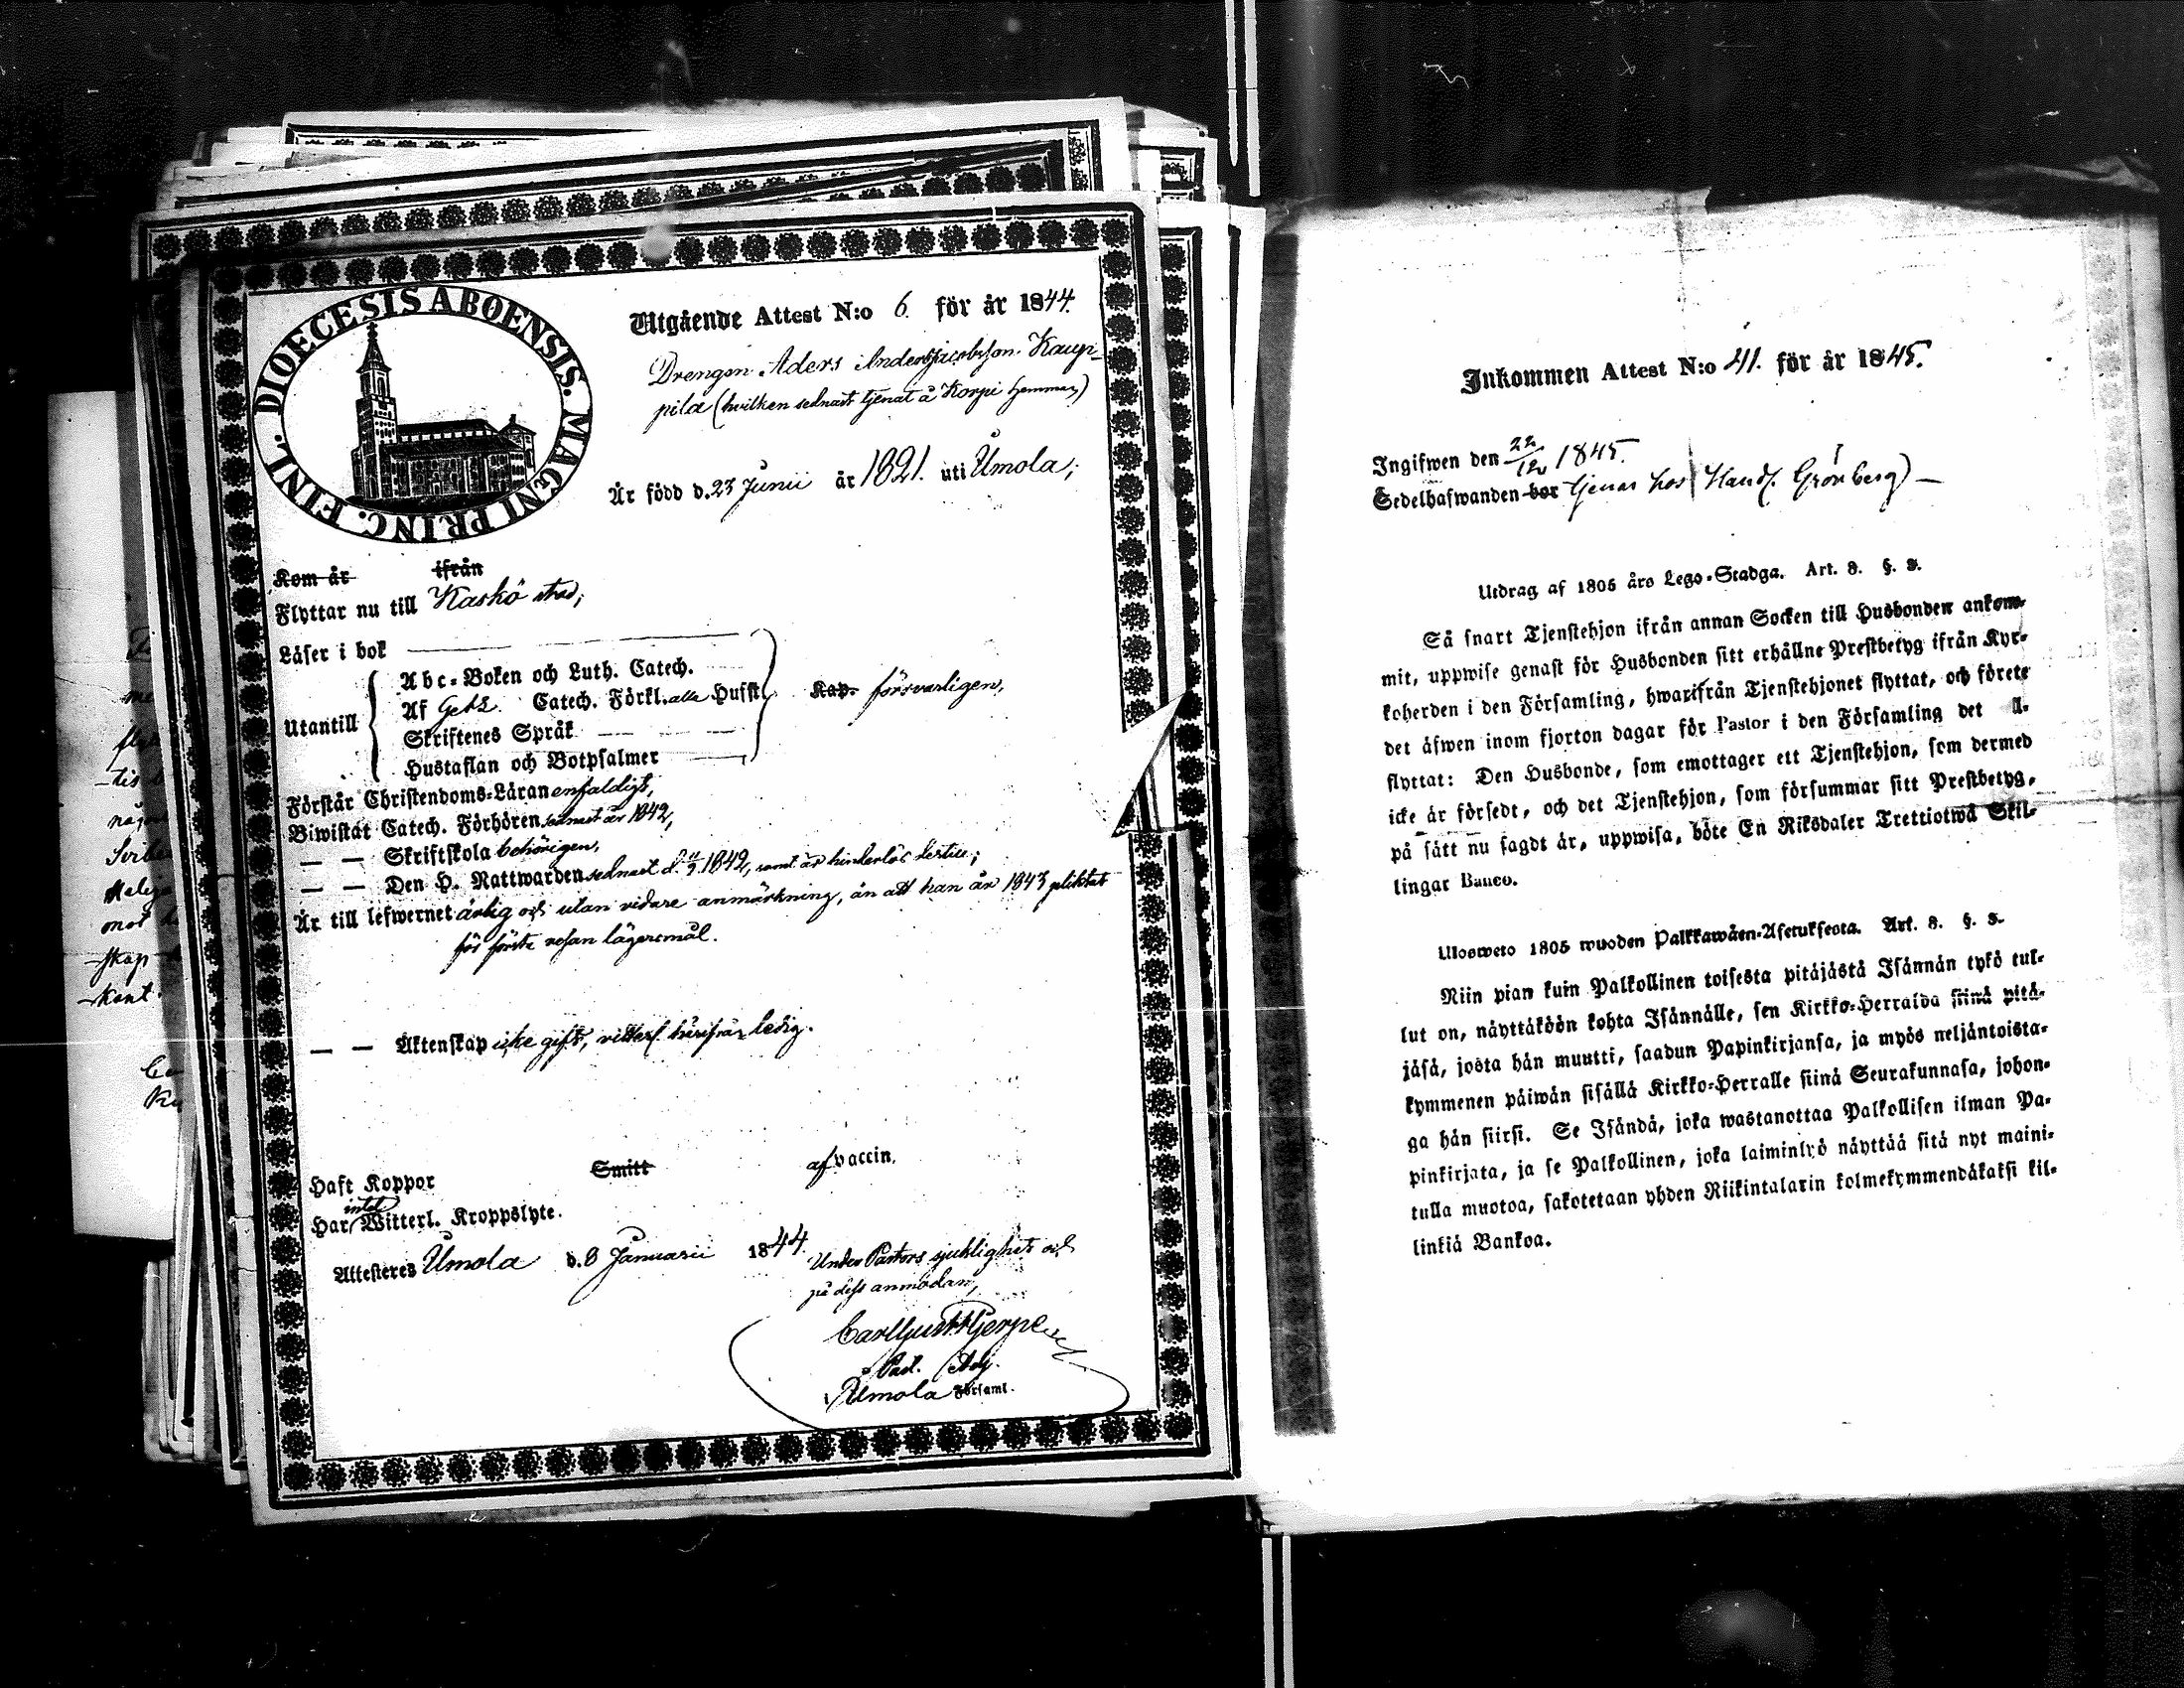 DIOECESIS ABOENSIS. MAGNI PRINC. FINL.
Utgående Attest N:o 6. för år 1844.
Drengen Aders Andersjacobsson Kaup-
pila (hvilken sednast tjenat å Korpi hemman)
Är född d. 23 Junii år 1821. uti Ümola;
Kom år ifrån
Flyttar nu till Kaskö stad;
Läser i bok
Abc-Boken och Luth. Catech.
Af Catech. Förkl. alla Husst.
Utantill
Kap. försvarligen,
Skriftenes Språk
Hustaflan och Botpsalmer
Förstår Christendoms-Läran enfaldigt,
Biwistat Catech. Förhören sednast år 1842,
— — Skriftskola behörigen,
— — Den H. Nattwarden sednast d. 1842, samt är hinderlös dertill;
Är till lefwernet ärlig och utan vidare anmärkning, än att han år 1843 pliktat
för första resan lägersmål.
— — Äktenskap icke gift, vitterl. härifrån ledig.
Haft Koppor Smitt af vaccin.
intet
Har Witterl. Kroppslyte.
Attesteras Ümola d. 8 Januarii 1844.
Under Pastors sjuklighet och
på dess anmodan,
Carl Gust. Hjerpe
Past. Adj.
Ümola Församl.
Inkommen Attest N:o 41. för år 1845.
Ingifwen den 22/12 1845.
Sedelhafwanden bor tjenar hos Handl. Grönberg —
Utdrag af 1805 års Lego-Stadga. Art. 8. §. 3.
Så snart Tjenstehjon ifrån annan Socken till Husbonden ankom-
mit, uppwise genast för Husbonden sitt erhållne Prestbetyg ifrån Kyr-
koherden i den Församling, hwarifrån Tjenstehjonet flyttat, och förete
det äfwen inom fjorton dagar för Pastor i den Församling det
flyttat: Den Husbonde, som emottager ett Tjenstehjon, som dermed
icke är försedt, och det Tjenstehjon, som försummar sitt Prestbetyg,
på sätt nu sagdt är, uppwisa, böte En Riksdaler Trettiotwå Skil-
lingar Banco.
Ulosweto 1805 wuoden Palkkawäen-Asetuksesta. Art. 8. §. 3.
Niin pian kuin Palkollinen toisesta pitäjästä Isännän tykö tul-
lut on, näyttäköön kohta Isännälle, sen Kirkko-Herralda siinä pitä-
jäsä, josta hän muutti, saadun Papinkirjansa, ja myös neljäntoista-
kymmenen päiwän sisällä Kirkko-Herralle siinä Seurakunnasa, johon-
ga hän siirsi. Se Isändä, joka wastanottaa Palkollisen ilman Pa-
pinkirjata, ja se Palkollinen, joka laiminlyö näyttää sitä nyt maini-
tulla muotoa, sakotetaan yhden Riikintalarin kolmekymmendäkaksi kil-
linkiä Bankoa.